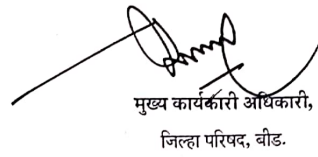 मुख्य कार्यकारी अधिकारी,
जिल्हा परिषद, बीड.